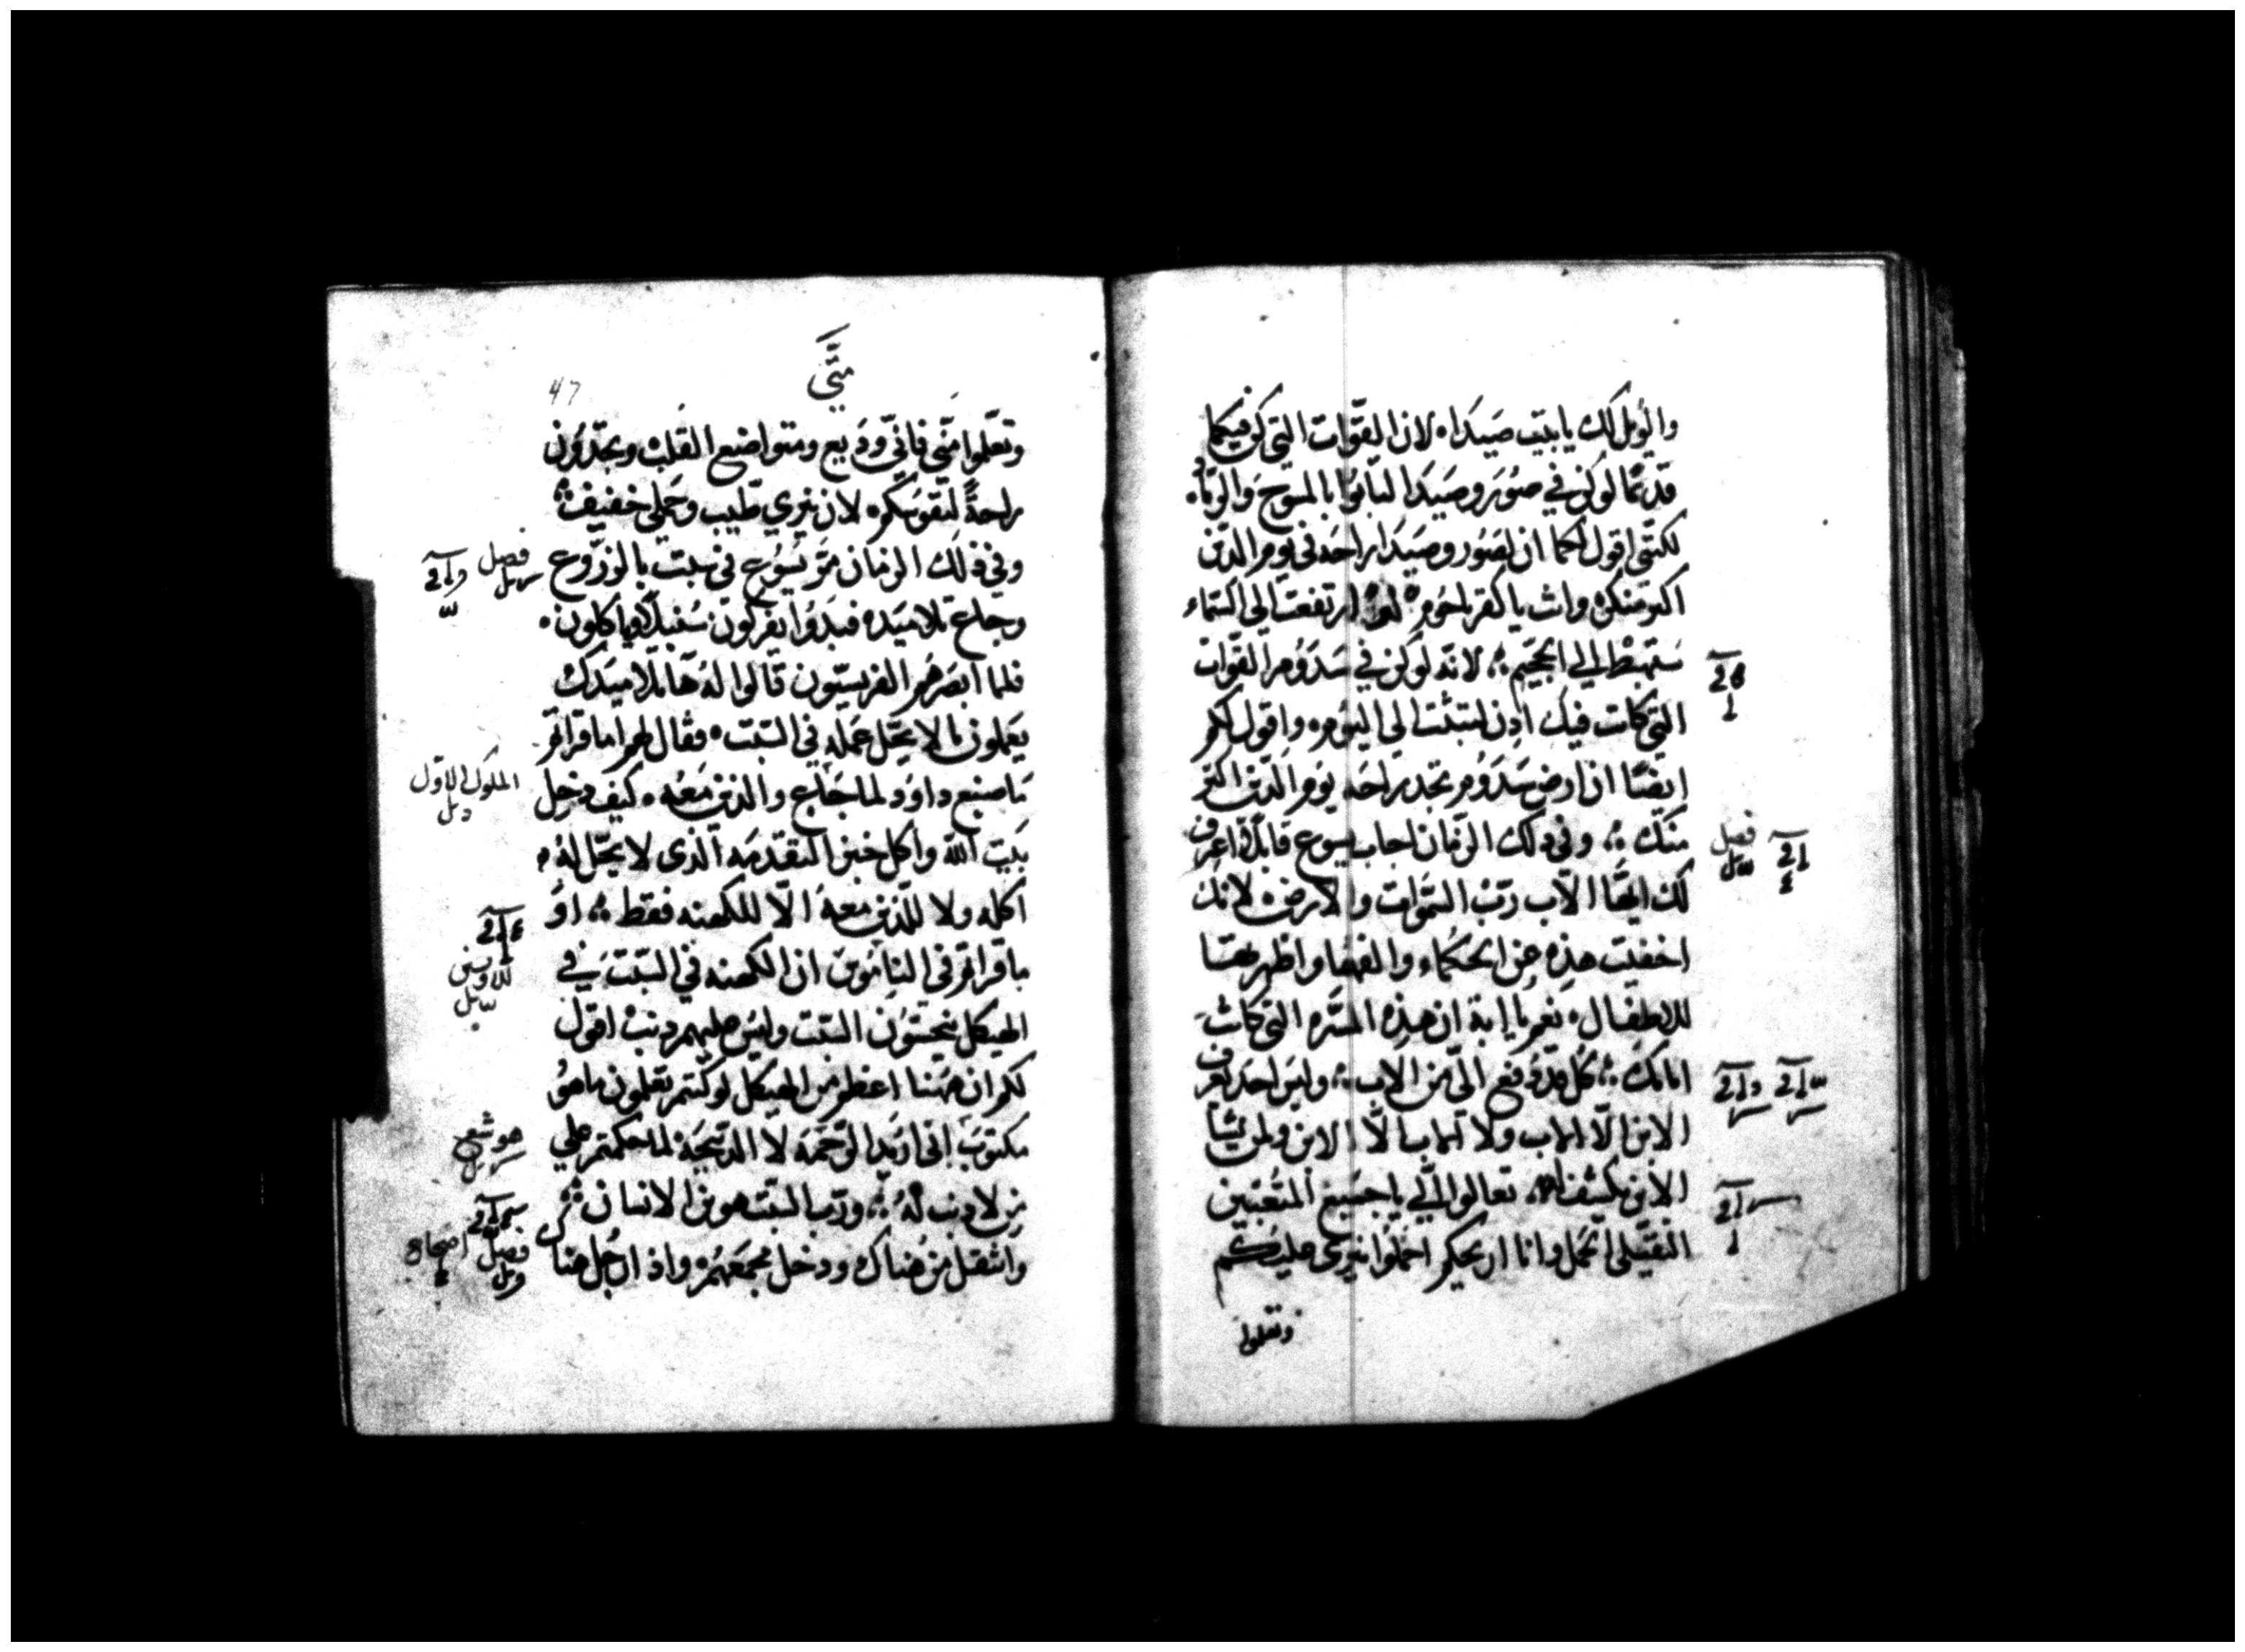 والويل لك يا بيت صيدا لان القوات التي كن فيكما
قديمًا لو كن في صور وصيدا لتابوا بالمسوح والرماد
لكني اقول لكما ان لصور وصيدا راحه في يوم الدين
اكثر منكن وانت يا كفرناحوم لو ارتفعت الي السماء
ستهبط الي الجحيم لانه لو كن في سدوم القوات
التي كانت فيك اذن لثبتت الي اليوم واقول لكم
ايضًا ان ارض سدوم تجد راحه يوم الدين اكثر
منك وفي ذلك الزمان اجاب يسوع قايلاً اعرف
لك ايها الاب رب السموات والارض لانك
اخفيت هذه عن الحكماء والفهما واظهرتها
للاطفال نعم يا ابة ان هذه المسره التي كانت
امامك كل قد دفع الي من الاب وليس احد يعرف
الابن الا الاب ولا الاب الا الابن ولمن يشا
الابن يكشف له تعالوا الي يا جميع المتعبين
الثقيلي الحمل وانا اريحكم احملوا نيري عليكم
وتعلموا
متَّى
47
وتعلّموا منّي فانّي وديع ومتواضع القلب وتجدون
راحةً لنفوسكم لان نيري طيب وحملي خفيف
وفي ذلك الزمان مرّ يسوع في سبت بالزروع
فصل
وجاع تلاميذه فبدوا يفركون سنبلاً وياكلون
فلما ابصرهم الفريسيون قالوا له ها تلاميذك
يعملون ما لا يحل عمله في السبت فقال لهم اما قراتم
ما صنع داود لما جاع والذين معه كيف دخل
الملوك الاول
بيت الله واكل خبز التقدمه الذي لا يحل له
اكله ولا للذين معه الا للكهنه فقط او
ما قراتم في الناموس ان الكهنه في السبت في
الهيكل ينجسون السبت وليس عليهم ذنب اقول
لكم ان ههنا اعظم من الهيكل لو كنتم تعلمون ما هو
مكتوب اني اريد الرحمه لا الذبيحه لما حكمتم علي
هوشع
من لا ذنب له ورب السبت هو ابن الانسان
وانتقل من هناك ودخل مجمعهم واذ رجل هناك
فصل اصحاح